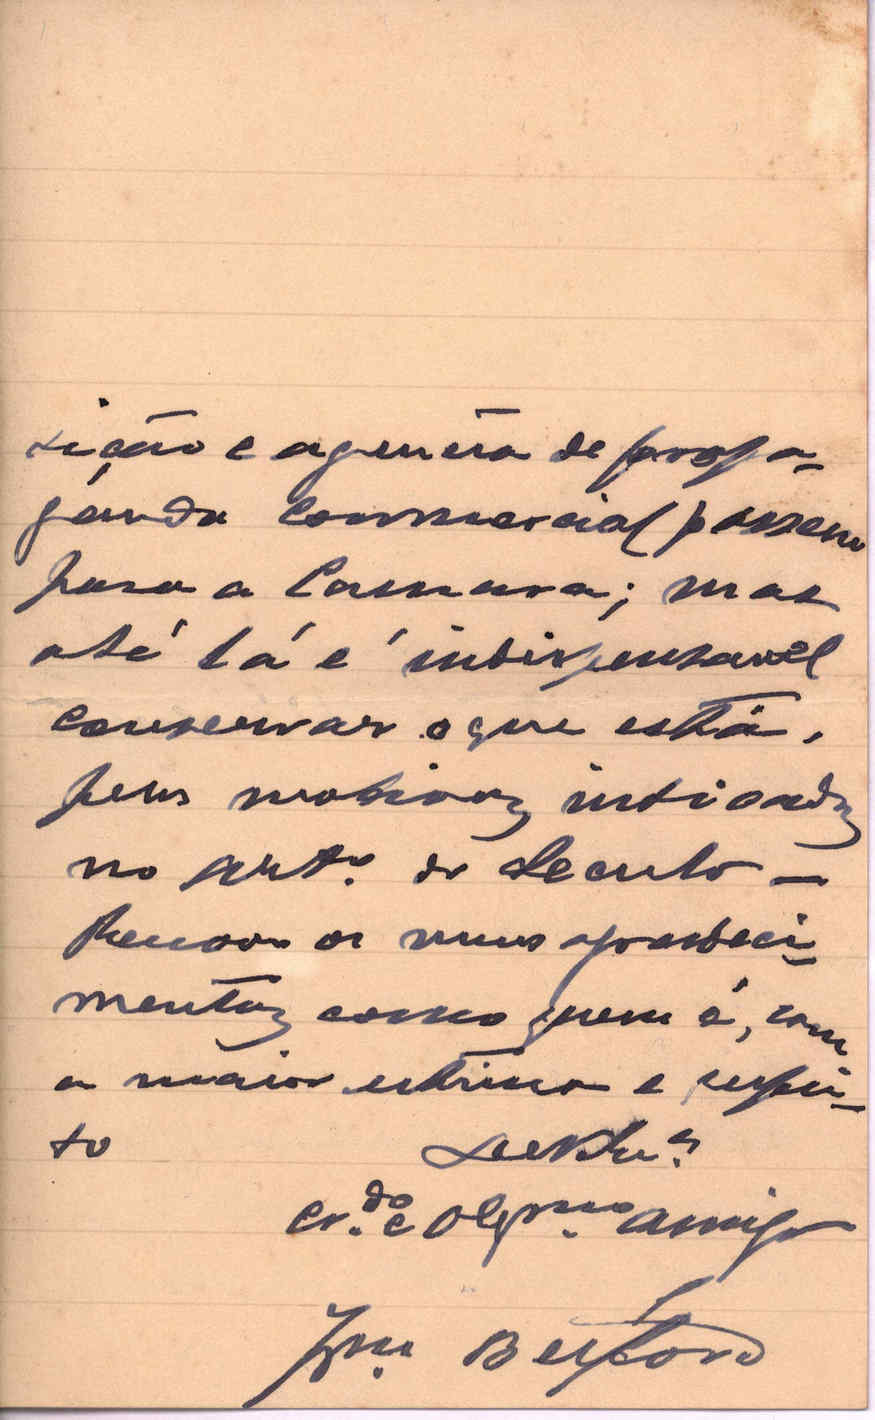 sição e agencia de propa-
ganda commercial passem
para a Camara; mas
até lá é indispensavel
conservar o que está,
pelos motivos indicados
no art.º do Seculo —
Renovo os meus agradeci-
mentos como quem é, com
a maior estima e respei-
to
cr.do e obg.mo amigo